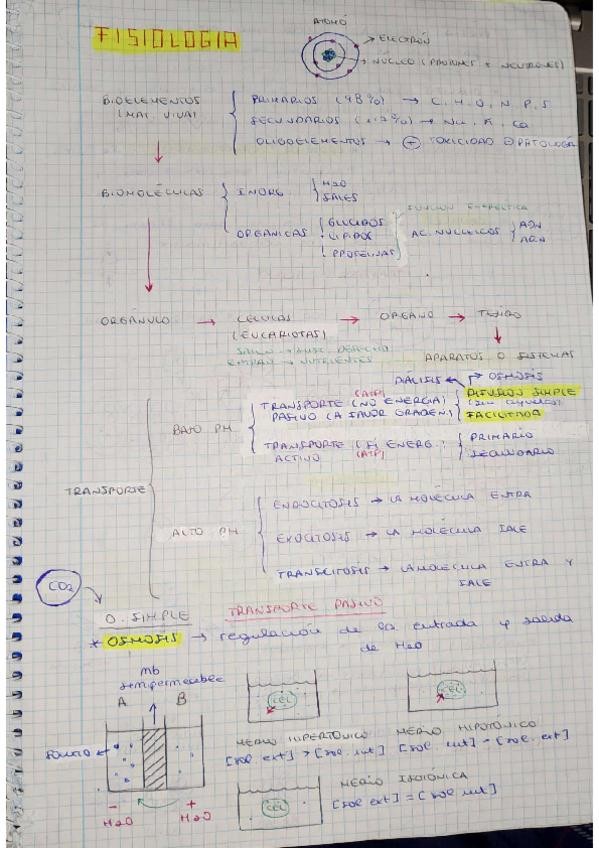 FISIOLOGIA
ATOMO
ELECTRÓN
NÚCLEO (PROTONES + NEUTRONES)
BIOELEMENTOS
(MAT. VIVA)
PRIMARIOS (98%) → C, H, O, N, P, S
SECUNDARIOS → Na, K, Ca
OLIGOELEMENTOS → + TOXICIDAD PATOLOGÍA
BIOMOLÉCULAS
INORG
H2O
SALES
ORGÁNICAS
GLUCIDOS
LIPIDOS
PROTEINAS
FUNCIÓN ENERGETICA
AC. NUCLEICOS
ADN
ARN
ORGÁNULO → CÉLULAS → ORGANO → TEJIDO
(EUCARIOTAS)
NUTRIENTES
APARATOS O SISTEMAS
DIÁLISIS
OSMOSIS
TRANSPORTE
BAJO PM
TRANSPORTE (NO ENERGIA)
(ATP)
PASIVO (A FAVOR GRADIEN.)
DIFUSIÓN SIMPLE
FACILITADA
TRANSPORTE (SÍ ENERG.)
ACTIVO (ATP)
PRIMARIO
SECUNDARIO
ALTO PM
ENDOCITOSIS → LA MOLÉCULA ENTRA
EXOCITOSIS → LA MOLÉCULA SALE
TRANSCITOSIS → LA MOLECULA ENTRA Y
SALE
CO2
D. SIMPLE
TRANSPORTE PASIVO
* OSMOSIS → regulación de la entrada y salida
de H2O
mb
semipermeable
A B
SOLUTO
- +
H2O H2O
CÉL
CÉL
MEDIO HIPERTÓNICO MEDIO HIPOTÓNICO
[sol. ext] > [sol. int] [sol. int] [sol. ext]
CÉL
MEDIO ISOTÓNICA
[sol ext] = [sol int]